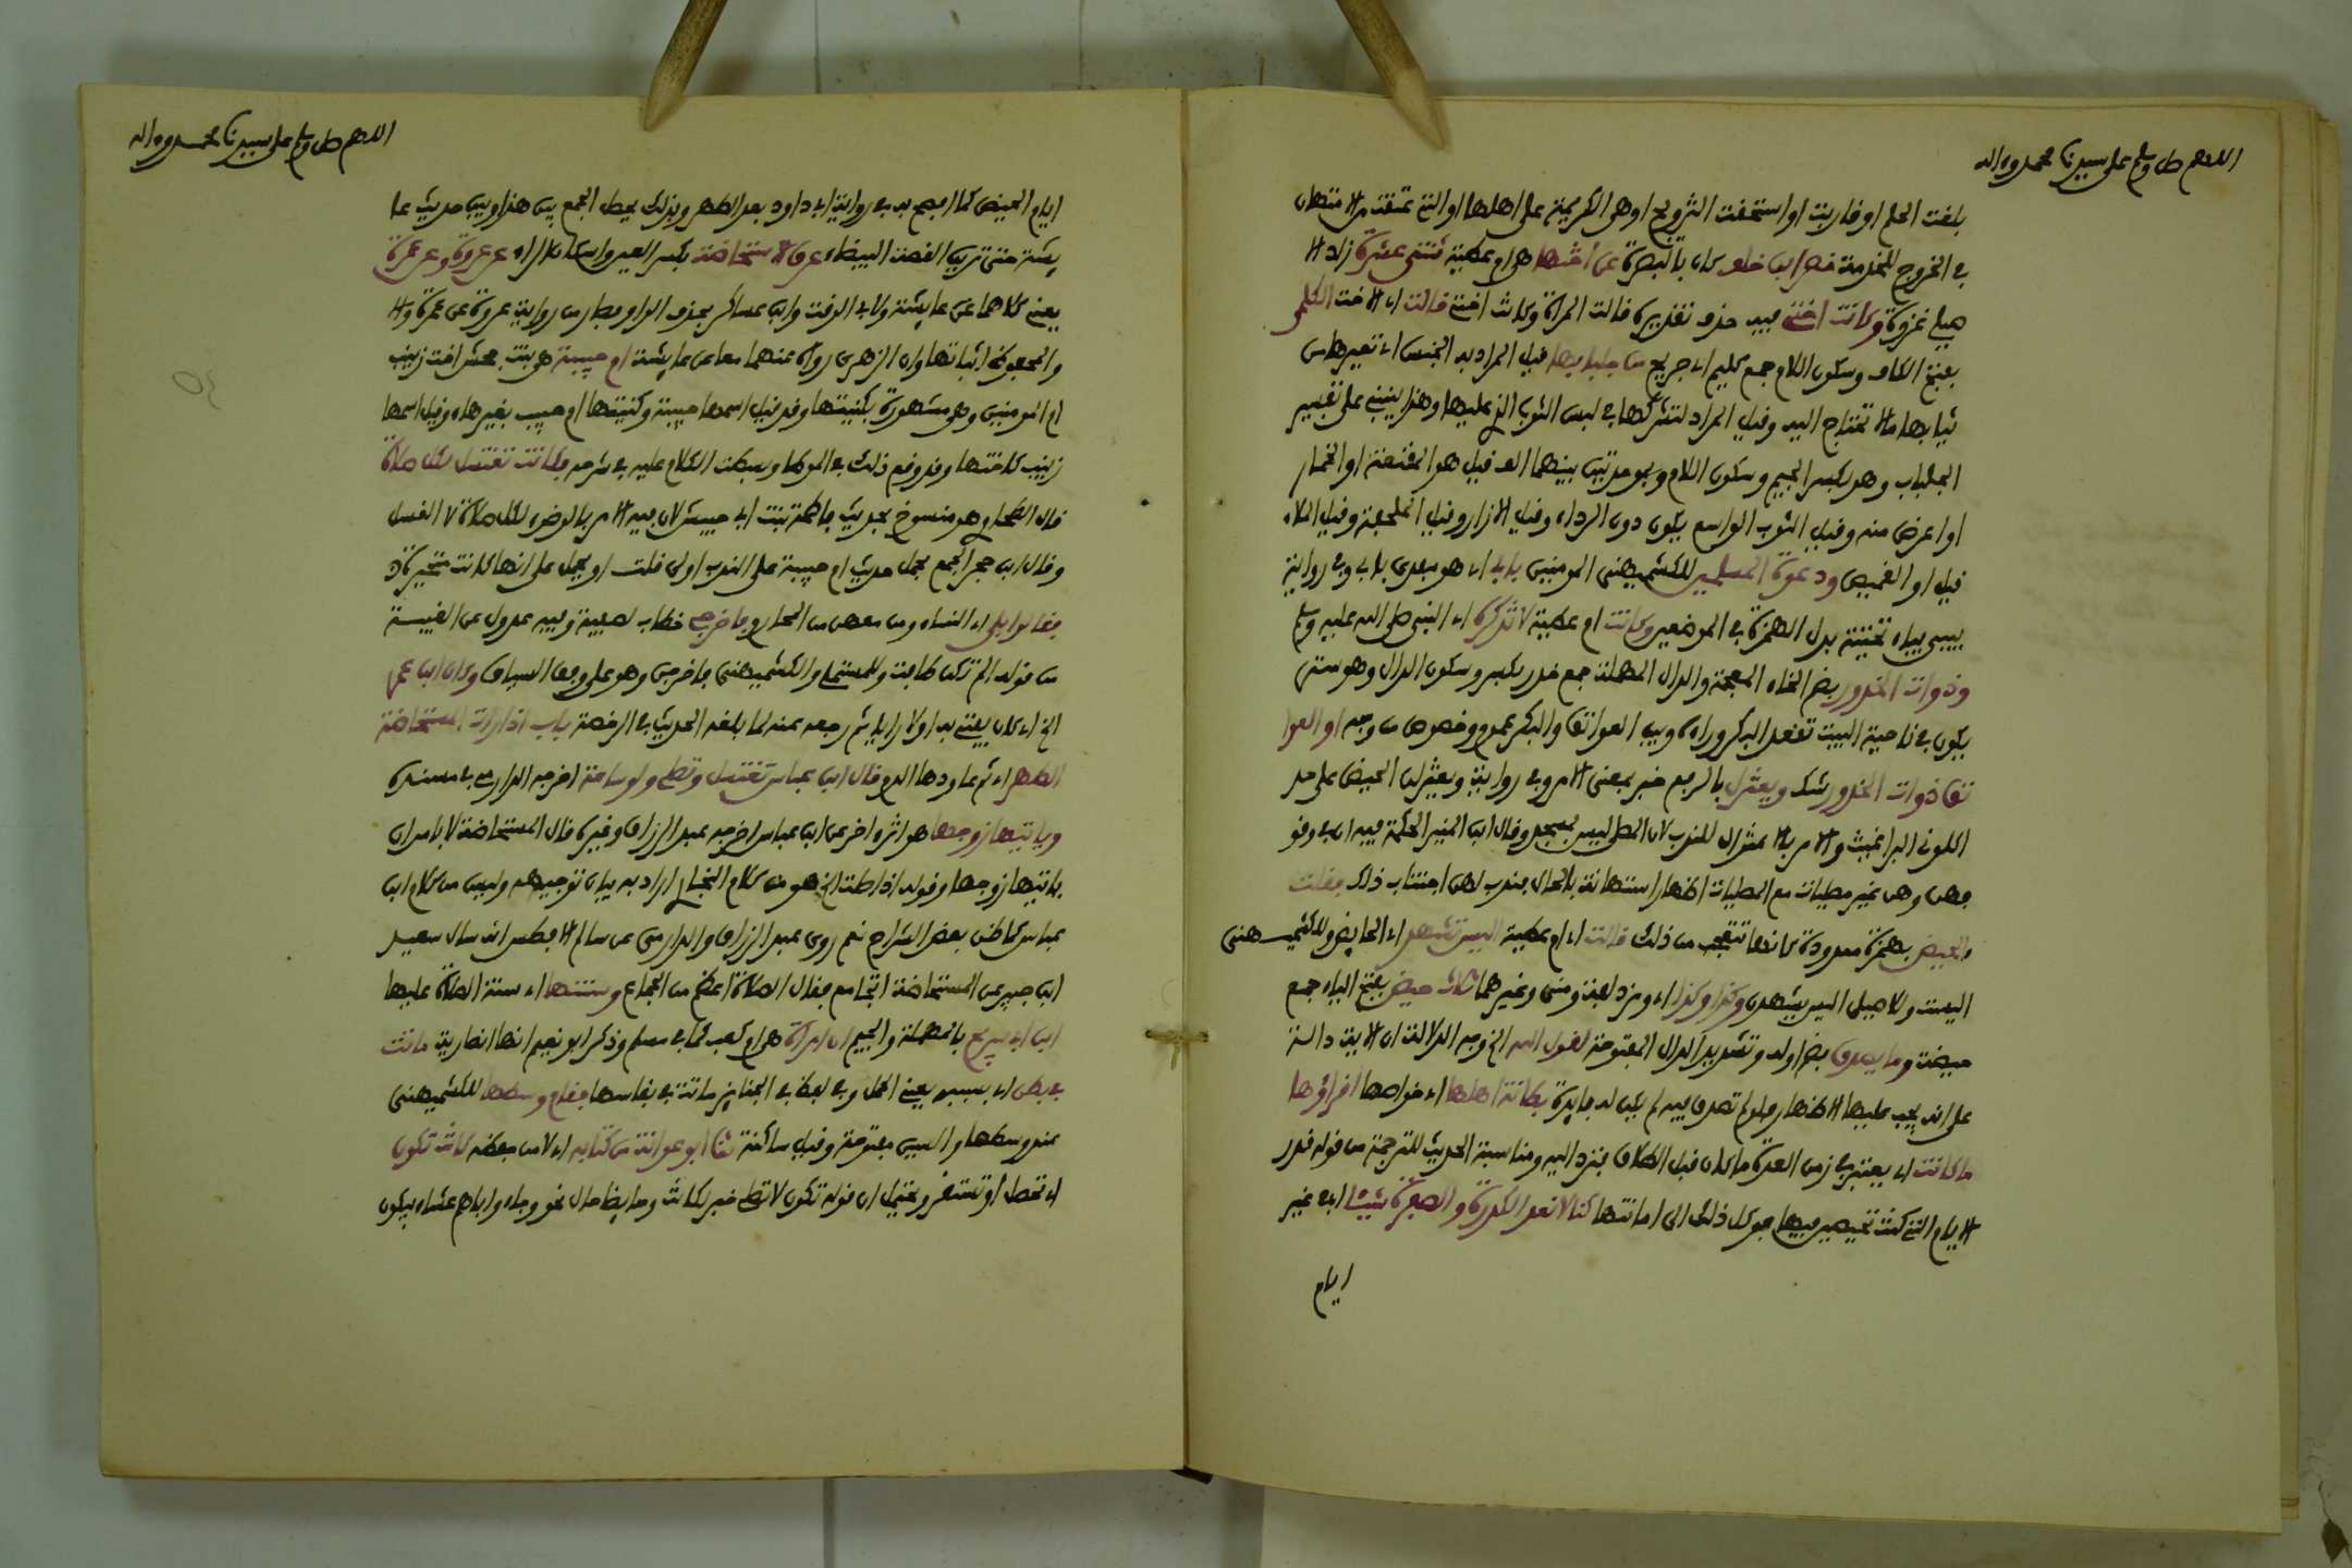 اللهم صل وسلم على سيدنا محمد وءاله
بلغت الحلم او قاربت او استحقت التزويج او هي الكريمة على اهلها او التي عتقت من الامتهان
في الخروج للخدمة قصر ابن خلف كان بالبصرة عن اختها هي ام عطية ثنتي عشرة زاد الا
صيلي غزوة وكانت اختي فيه حذف تقديره قالت المراة وكانت اختي قالت اي الاخت الكلمى
بفتح الكاف وسكون اللام جمع كليم اي جريح من جلبابها قيل المراد به الجنس اي تعيرها من
ثيابها ما لا تحتاج اليه وقيل المراد لتشركها في لبس الثوب الذي عليها وهذا ينبني على تفسير
الجلباب وهو بكسر الجيم وسكون اللام وبموحدتين بينهما الف قيل هو المقنعة او الخمار
او اعرض منه وقيل الثوب الواسع يكون دون الرداء وقيل الازار وقيل الملحفة وقيل الملاءة
قيل او القميص ودعوة المسلمين للكشميهني المومنين بابي اي هو مفدى بابي وفي رواية
بيبي بياء تحتية بدل الهمزة في الموضعين وكانت ام عطية لا تذكره اي النبي صلى الله عليه وسلم
وذوات الخدور بضم الخاء المعجمة والدال المهملة جمع خدر بكسر وسكون الدال وهو ستر
يكون في ناحية البيت تقعد البكر وراءه وبين العواتق والبكر عموم وخصوص من وجه او العوا
تق ذوات الخدور شك ويعتزل بالرفع خبر بمعنى الامر وفي رواية ويعتزلن الحيض على حد
اكلوني البراغيث والامر بالاعتزال للندب لان المصلى ليس بمسجد وقال ابن المنير الحكمة فيه ان في وقو
فهن وهن غير مصليات مع المصليات اظهار استهانة بالحال فندب لهن اجتناب ذلك فقلت
ءالحيض بهمزة ممدودة كانها تتعجب من ذلك قالت اي ام عطية اليس تشهد اي الحايض وللكشميهني
اليست وللاصيلي اليس يشهدن وكذا وكذا اي ومزدلفة ومنى وغيرهما ثلاث حيض بفتح الياء جمع
حيضة وما يصدق بضم اوله وتشديد الدال المفتوحة لقول الله الخ وجه الدلالة ان الاية دالة
على انه يجب عليها الاظهار فلو لم تصدق فيه لم يكن له فايدة بطانة اهلها اي خواصها اقراؤها
ما كانت اي يعتبر في زمن العدة ما كان قبل الطلاق فترد اليه ومناسبة الحديث للترجمة من قوله قدر
الايام التي كنت تحيضين فيها فوكل ذلك الى امانتها كنا لا نعد الكدرة والصفرة شيئا اي في غير
ايام
اللهم صل وسلم على سيدنا محمد وءاله
ايام الحيض كما افصح به في رواية ابي داود بعد الطهر وبذلك يحصل الجمع بين هذا وبين حديث عا
يشة حتى ترين القصة البيضاء عرق الاستحاضة بكسر العين واسكان الراء عن عروة وعن عمرة
يعني كلاهما عن عايشة ولابي الوقت وابن عساكر بحذف الواو فصار من رواية عروة عن عمرة والا
والمحفوظ اثباتها وان الزهري رواه عنهما معا عن عايشة ام حبيبة هي بنت جحش اخت زينب
ام المومنين وهي مشهورة بكنيتها وقد قيل اسمها حبيبة وكنيتها ام حبيب بغير هاء وقيل اسمها
زينب كاختها وقد وقع ذلك في الموطا وبسطت الكلام عليه في شرحه فكانت تغتسل لكل صلاة
قال الطحاوي هو منسوخ بحديث فاطمة بنت ابي حبيش لان فيه الامر بالوضوء لكل صلاة لا الغسل
وقال ابن حجر الجمع بحمل حديث ام حبيبة على الندب اولى قلت او يحمل على انها كانت متحيرة
فقالوا بلى اي النساء ومن معهن من المحارم فاخرجي خطاب لصفية وفيه عدول عن الغيبة
من قوله الم تكن طافت وللمستملي والكشميهني فاخرجن وهو على وفق السياق وكان ابن عمر
الخ اي كان يفتي به اولا برايه ثم رجع عنه لما بلغه الحديث في الرخصة باب اذا رات المستحاضة
الطهر اي ثم عاودها الدم وقال ابن عباس تغتسل وتصلي ولو ساعة اخرجه الدارمي في مسنده
وياتيها زوجها هو اثر ءاخر عن ابن عباس اخرجه عبد الرزاق وغيره قال المستحاضة لا باس ان
ياتيها زوجها وقوله اذا صلت الخ هو من كلام البخاري اراد به بيان توجيهه وليس من كلام ابن
عباس كما ظن بعض الشراح نعم روى عبد الرزاق والدارمي عن سالم الافطس انه سال سعيد
ابن جبير عن المستحاضة اتجامع فقال الصلاة اعظم من الجماع وسنتها اي سنة الصلاة عليها
ابن ابي سريج بالمهملة والجيم ان امراة هي ام كعب كما في مسلم وذكر ابو نعيم انها انصارية ماتت
في بطن اي بسببه يعني الحمل وفي لفظ في الجنايز ماتت في نفاسها فقام وسطها للكشميهني
عند وسطها والسين مفتوحة وقيل ساكنة ثنا ابو عوانة من كتابه اي لا من حفظه كانت تكون
اي تحصل او تستقر ويحتمل ان قوله تكون لا تصلي خبر لكانت وحايضا حال نحو وجاءوا اباهم عشاء يبكون